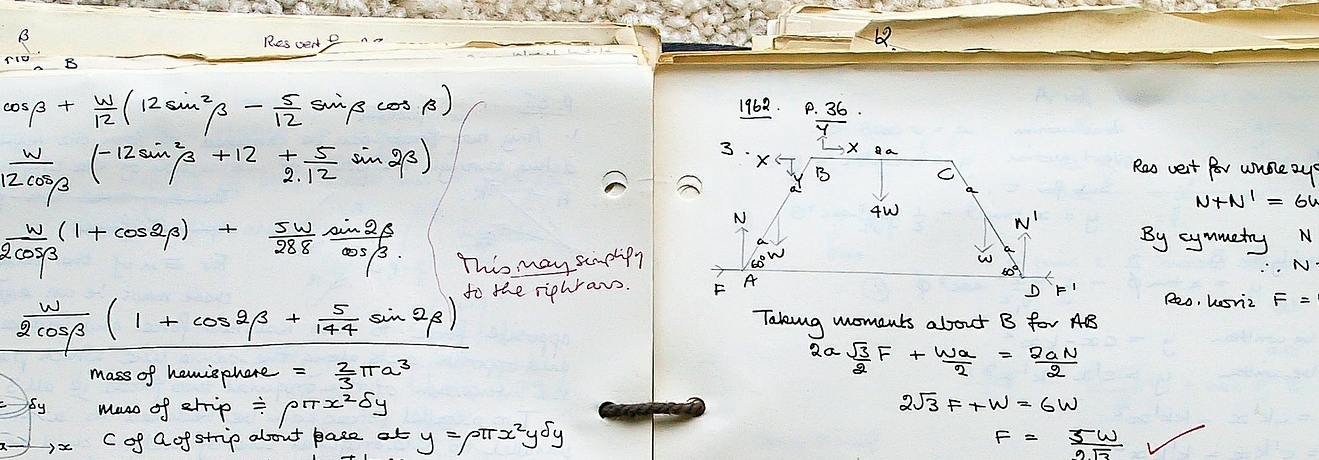 β
Res vert
B
cosβ + W/12 (12 sin²β − 5/12 sinβ cos β)
W/12 cosβ (−12 sin²β + 12 + 5/2.12 sin 2β)
W/2cosβ (1 + cos2β) + 5W/288 sin2β/cosβ.
This may simplify
to the right ans.
W/2 cosβ (1 + cos 2β + 5/144 sin 2β)
mass of hemisphere = 2/3 πa³
δy
mass of strip ≑ ρπx²δy
x
C of G of strip about base at y = ρπx²yδy
12.
1962. P. 36.
Y
3. X X 2a
Y B C
a a
4W
N N'
a W W a
60° 60°
F A D F'
Taking moments about B for AB
2a √3/2 F + Wa/2 = 2aN/2
2√3 F + W = 6W
F = 5W/2√3
Res vert for whole
N+N' = 6W
By symmetry N
∴ N
Res. horiz F =